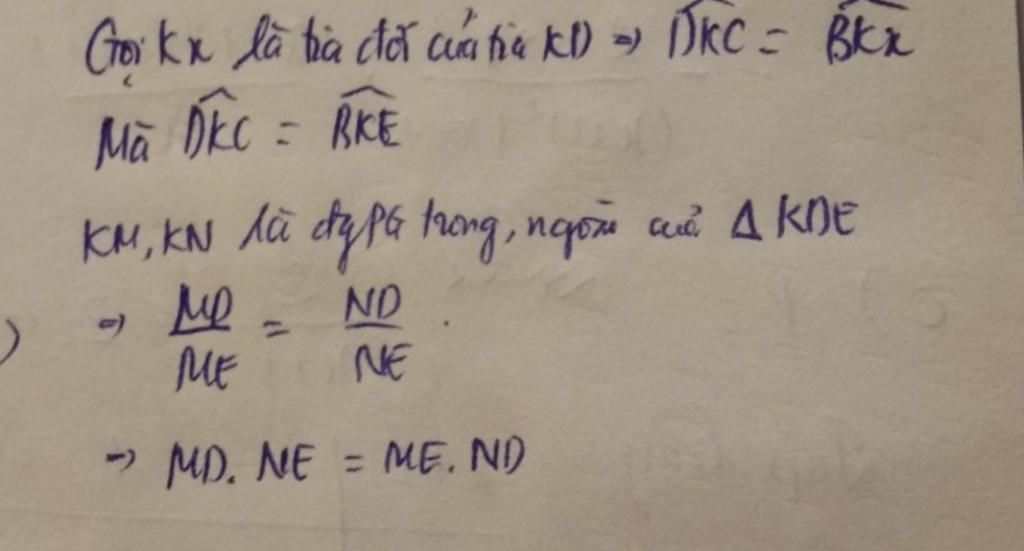 Gọi Kx là tia đối của tia KD => \widehat{DKC} = \widehat{BKx}
Mà \widehat{DKC} = \widehat{BKE}
KM, KN là đg PG trong, ngoài của Δ KDE
=> \frac{MD}{ME} = \frac{ND}{NE}
=> MD. NE = ME. ND